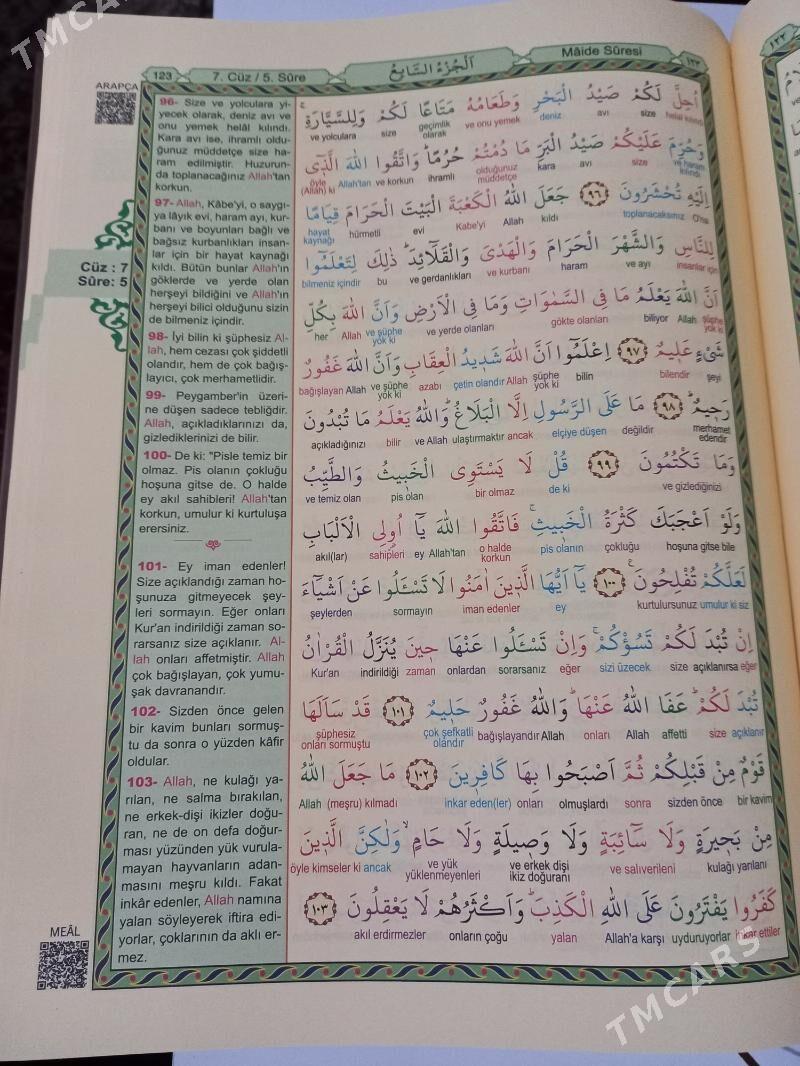 TMCARS
123
7. Cüz / 5. Sûre
اَلْجُزْءُ السَّابِعُ
Mâide Sûresi
١٢٣
ARAPÇA
96- Size ve yolculara yi-
yecek olarak, deniz avı ve
onu yemek helâl kılındı.
Kara avı ise, ihramlı oldu-
ğunuz müddetçe size ha-
ram edilmiştir. Huzurun-
da toplanacağınız Allah'tan
korkun.
97- Allah, Kâbe'yi, o saygı-
ya lâyık evi, haram ayı, kur-
banı ve boyunları bağlı ve
bağsız kurbanlıkları insan-
lar için bir hayat kaynağı
kıldı. Bütün bunlar Allah'ın
göklerde ve yerde olan
herşeyi bildiğini ve Allah'ın
herşeyi bilici olduğunu sizin
de bilmeniz içindir.
Cüz : 7
Sûre: 5
98- İyi bilin ki şüphesiz Al-
lah, hem cezası çok şiddetli
olandır, hem de çok bağış-
layıcı, çok merhametlidir.
99- Peygamber'in üzeri-
ne düşen sadece tebliğdir.
Allah, açıkladıklarınızı da,
gizlediklerinizi de bilir.
100- De ki: "Pisle temiz bir
olmaz. Pis olanın çokluğu
hoşuna gitse de. O halde
ey akıl sahibleri! Allah'tan
korkun, umulur ki kurtuluşa
erersiniz.
101- Ey iman edenler!
Size açıklandığı zaman ho-
şunuza gitmeyecek şey-
leri sormayın. Eğer onları
Kur'an indirildiği zaman so-
rarsanız size açıklanır. Al-
lah onları affetmiştir. Allah
çok bağışlayan, çok yumu-
şak davranandır.
102- Sizden önce gelen
bir kavim bunları sormuş-
tu da sonra o yüzden kâfir
oldular.
103- Allah, ne kulağı ya-
rılan, ne salma bırakılan,
ne erkek-dişi ikizler doğu-
ran, ne de on defa doğur-
ması yüzünden yük vurula-
mayan hayvanların adan-
masını meşru kıldı. Fakat
inkâr edenler, Allah namına
yalan söyleyerek iftira edi-
yorlar, çoklarının da aklı er-
mez.
MEÂL
اُحِلَّ لَكُمْ صَيْدُ الْبَحْرِ وَطَعَامُهُ مَتَاعًا لَكُمْ وَلِلسَّيَّارَةِ
helâl kılındı size avı deniz ve onu yemek geçimlik olarak size ve yolculara
وَحُرِّمَ عَلَيْكُمْ صَيْدُ الْبَرِّ مَا دُمْتُمْ حُرُمًا وَاتَّقُوا اللّٰهَ الَّذِى
ve haram kılındı size avı kara olduğunuz müddetçe ihramlı ve korkun Allah'tan öyle (Allah) ki
اِلَيْهِ تُحْشَرُونَ ﴿٩٦﴾ جَعَلَ اللّٰهُ الْكَعْبَةَ الْبَيْتَ الْحَرَامَ قِيَامًا
O'na toplanacaksınız kıldı Allah Kabe'yi evi hürmetli hayat kaynağı
لِلنَّاسِ وَالشَّهْرَ الْحَرَامَ وَالْهَدْىَ وَالْقَلَٓائِدَ ذٰلِكَ لِتَعْلَمُٓوا
insanlar için ve ayı haram ve kurbanı ve gerdanlıkları bu bilmeniz içindir
اَنَّ اللّٰهَ يَعْلَمُ مَا فِى السَّمٰوَاتِ وَمَا فِى الْاَرْضِ وَاَنَّ اللّٰهَ بِكُلِّ
şüphe yok ki Allah biliyor gökte olanları ve yerde olanları ve şüphe yok ki Allah her
شَىْءٍ عَلِيمٌ ﴿٩٧﴾ اِعْلَمُٓوا اَنَّ اللّٰهَ شَدِيدُ الْعِقَابِ وَاَنَّ اللّٰهَ غَفُورٌ
şeyi bilendir bilin şüphe yok ki Allah çetin olandır azabı ve şüphe yok ki Allah bağışlayan
رَحِيمٌ ﴿٩٨﴾ مَا عَلَى الرَّسُولِ اِلَّا الْبَلَاغُ وَاللّٰهُ يَعْلَمُ مَا تُبْدُونَ
merhamet edendir değildir elçiye düşen ancak ulaştırmaktır ve Allah bilir açıkladığınızı
وَمَا تَكْتُمُونَ ﴿٩٩﴾ قُلْ لَا يَسْتَوِى الْخَبِيثُ وَالطَّيِّبُ
ve gizlediğinizi de ki bir olmaz pis olan ve temiz olan
وَلَوْ اَعْجَبَكَ كَثْرَةُ الْخَبِيثِ فَاتَّقُوا اللّٰهَ يَٓا اُولِى الْاَلْبَابِ
hoşuna gitse bile çokluğu pis olanın o halde korkun Allah'tan ey sahipleri akıl(lar)
لَعَلَّكُمْ تُفْلِحُونَ ﴿١٠٠﴾ يَٓا اَيُّهَا الَّذِينَ اٰمَنُوا لَا تَسْـَٔلُوا عَنْ اَشْيَٓاءَ
umulur ki siz kurtulursunuz ey iman edenler sormayın şeylerden
اِنْ تُبْدَ لَكُمْ تَسُؤْكُمْ وَاِنْ تَسْـَٔلُوا عَنْهَا حِينَ يُنَزَّلُ الْقُرْاٰنُ
eğer açıklanırsa size sizi üzecek eğer sorarsanız onlardan zaman indirildiği Kur'an
تُبْدَ لَكُمْ عَفَا اللّٰهُ عَنْهَا وَاللّٰهُ غَفُورٌ حَلِيمٌ ﴿١٠١﴾ قَدْ سَاَلَهَا
açıklanır size affetti Allah onları Allah bağışlayandır çok şefkatli olandır şüphesiz onları sormuştu
قَوْمٌ مِنْ قَبْلِكُمْ ثُمَّ اَصْبَحُوا بِهَا كَافِرِينَ ﴿١٠٢﴾ مَا جَعَلَ اللّٰهُ
bir kavim sizden önce sonra olmuşlardı onları inkar eden(ler) (meşru) kılmadı Allah
مِنْ بَحِيرَةٍ وَلَا سَٓائِبَةٍ وَلَا وَصِيلَةٍ وَلَا حَامٍ وَلٰكِنَّ الَّذِينَ
kulağı yarılanı ve salıverileni ve erkek dişi ikiz doğuranı ve yük yüklenmeyenleri ancak öyle kimseler ki
كَفَرُوا يَفْتَرُونَ عَلَى اللّٰهِ الْكَذِبَ وَاَكْثَرُهُمْ لَا يَعْقِلُونَ ﴿١٠٣﴾
inkar ettiler uyduruyorlar Allah'a karşı yalan onların çoğu akıl erdirmezler
TMCARS